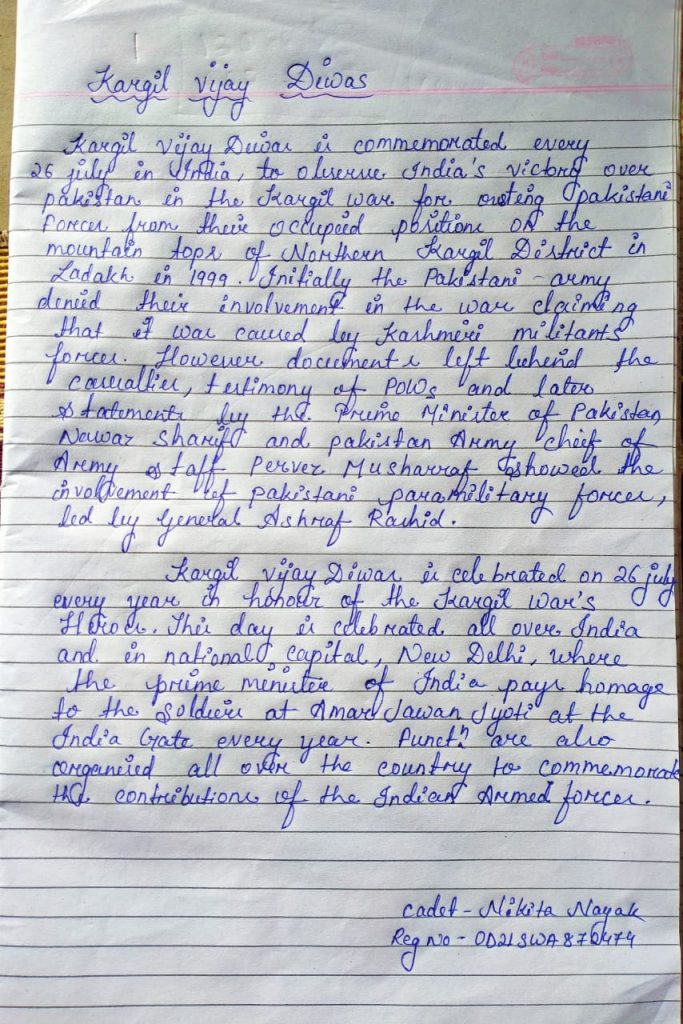 Kargil Vijay Diwas
Kargil Vijay Diwas is commemorated every
26 july in India, to observe India's victory over
pakistan in the Kargil war for ousting pakistani
forces from their occupied positions on the
mountain tops of Northern Kargil District in
Ladakh in 1999. Initially the Pakistani army
denied their involvement in the war claiming
that it was caused by Kashmiri militants
forces. However documents left behind the
casualties, testimony of POWs and later
statements by the Prime Minister of Pakistan,
Nawaz Sharif and pakistan Army chief of
Army staff Pervez Musharraf showed the
involvement of pakistani paramilitary forces,
led by General Ashraf Rashid.
Kargil vijay Diwas is celebrated on 26 july
every year in honour of the Kargil war's
Heroes. This day is celebrated all over India
and in national capital, New Delhi, where
the prime minister of India pays homage
to the soldiers at Amar Jawan Jyoti at the
India Gate every year. Functn are also
organised all over the country to commemorate
the contributions of the Indian Armed forces.
cadet - Nikita Nayak
Reg No -